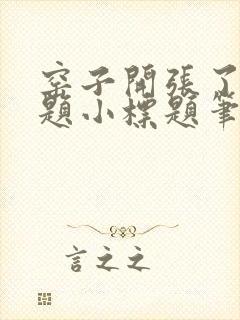 窑子開張了
題小標題筆
言之之